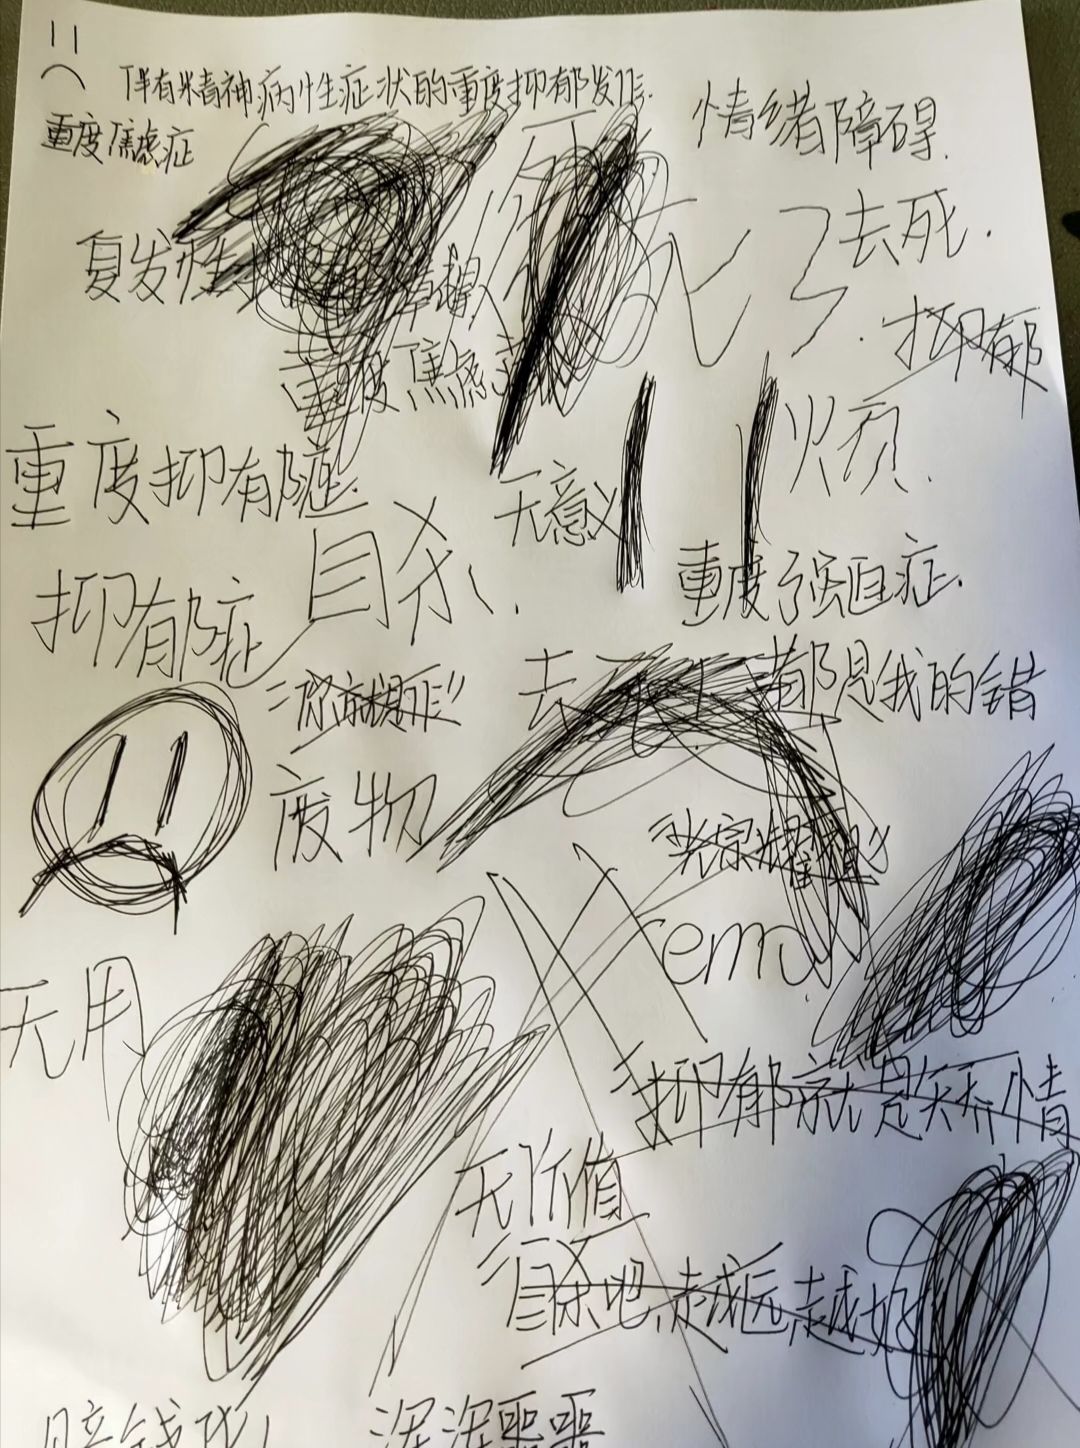 伴有精神病性症状的重度抑郁发作.
重度焦虑症
情绪障碍.
复发性
去死.
重度焦虑
抑郁
烦.
重度抑郁症
无意义
自杀、.
重度强迫症.
抑郁症
去死
都是我的错
废物
"光宗耀祖"
emo
无用
抑郁就是矫情
无价值
自杀吧,越远越好
赔钱玩
浑浑噩噩